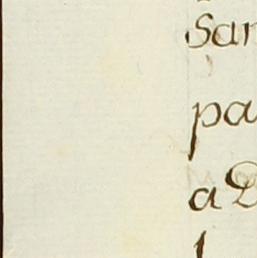 San
pa
aD